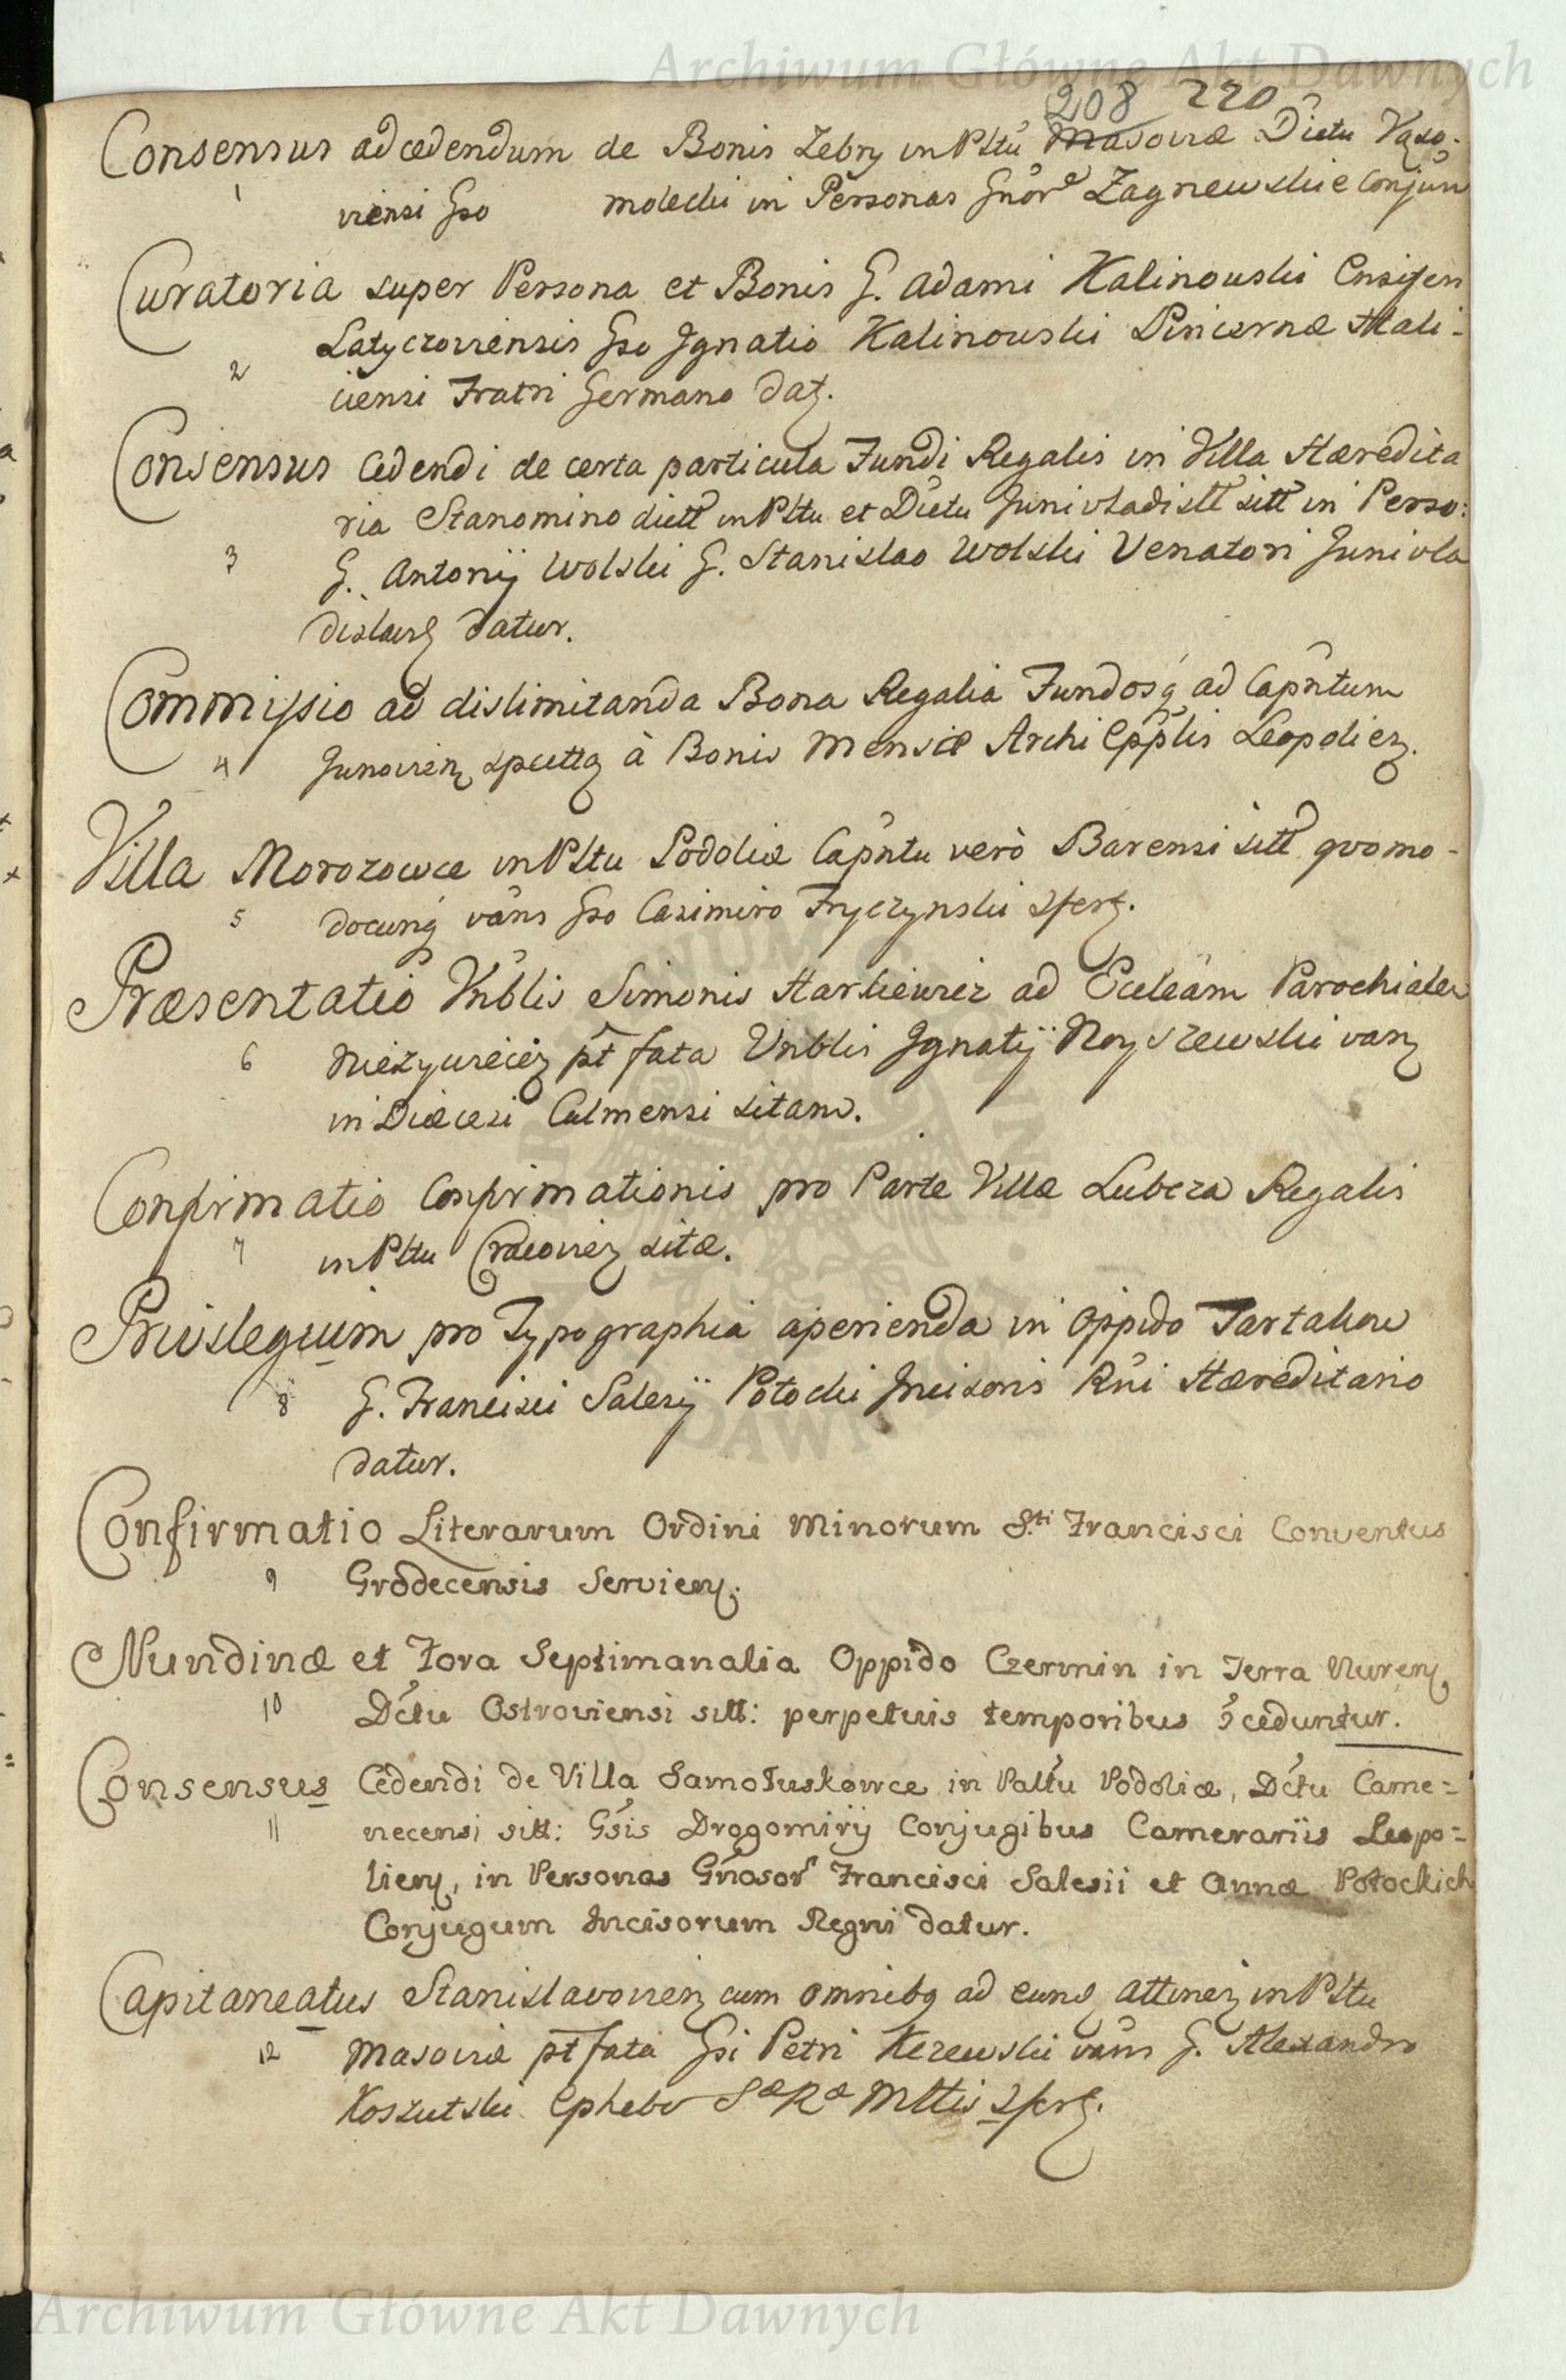 Archiwum Główne Akt Dawnych
208 220
Consensus ad cedendum de Bonis Zebry in Pltu Masoviæ Dictu Wąso-
1 viensi Gso molecki in Personas Gnor Zagnewskie Conjun
Curatoria super Persona et Bonis G. Adami Kalinowski Ensiferi
Latyczoviensis Gso Ignatio Kalinowski Pincernæ Hali-
2 ciensi Fratri Germano dat.
Consensus Cedendi de certa particula Fundi Regalis in Villa Hæredita
ria Stanomino dictt in Pltu et Dictu Junivladisll sitt in Perso:
3 G. Antonij Wolski G. Stanislao Wolski Venatori Junivla
dislavs datur.
Commissio ad dislimitanda Bona Regalia Fundosq ad Capntum
4 Janovien spectta à Bonis Mensæ Archi Epplis Leopolien.
Villa Morozowce in Pltu Podoliæ Capntu verò Barensi sitt quomo-
5 docunq vans Gso Casimiro Fryczynski 2fert.
Præsentatio Vnblis Simonis Harkiewicz ad Eccleam Parochialem
6 Niezywiecien pt fata Vnblis Ignatij Noyszewski van
in Diæcesi Culmensi sitam.
Confirmatio Confirmationis pro Parte Villæ Lubcza Regalis
7 in Pltu Cracovien sitæ.
Privilegium pro Typographia aperienda in Oppido Tartakow
8 G. Francisci Salesij Potocki Incisoris Rni Hæreditario
datur.
Confirmatio Literarum Ordini Minorum S.ti Francisci Conventus
9 Grodecensis Servien.
Nundinæ et Fora Septimanalia Oppido Czermin in Terra Nuren
10 Dctu Ostroviensi sitt: perpetuis temporibus ɔceduntur.
Consensus Cedendi de Villa Samotuskowce in Paltu Podoliæ, Dctu Came=
11 necensi sitt: Gsis Drogomirÿ Conjugibus Camerariis Leopo=
lien, in Personas Gnosor Francisci Salesii et Annæ Potockich
Conjugum Incisorum Regni datur.
Capitaneatus Stanislavovien cum omnibq ad eund attinen in Pltu
12 Masoviæ pt fata Gsi Petri Kczewski vans G. Alexandro
Koszutski Ephebo Sæ Ræ Mttis 2fert.
Archiwum Główne Akt Dawnych